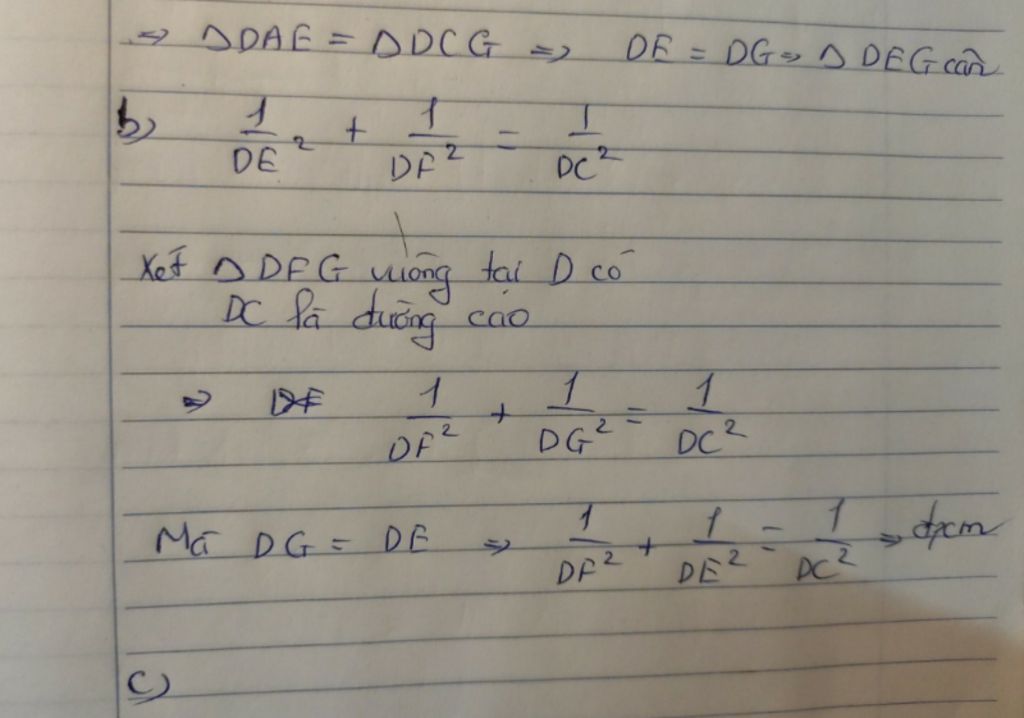 => ΔDAE = ΔDCG => DE = DG => Δ DEG cân
b) 1/DE² + 1/DF² = 1/DC²
Xét ΔDFG vuông tại D có
DC là đường cao
=> 1/DF² + 1/DG² = 1/DC²
Mà DG = DE => 1/DF² + 1/DE² = 1/DC² => đpcm
c)